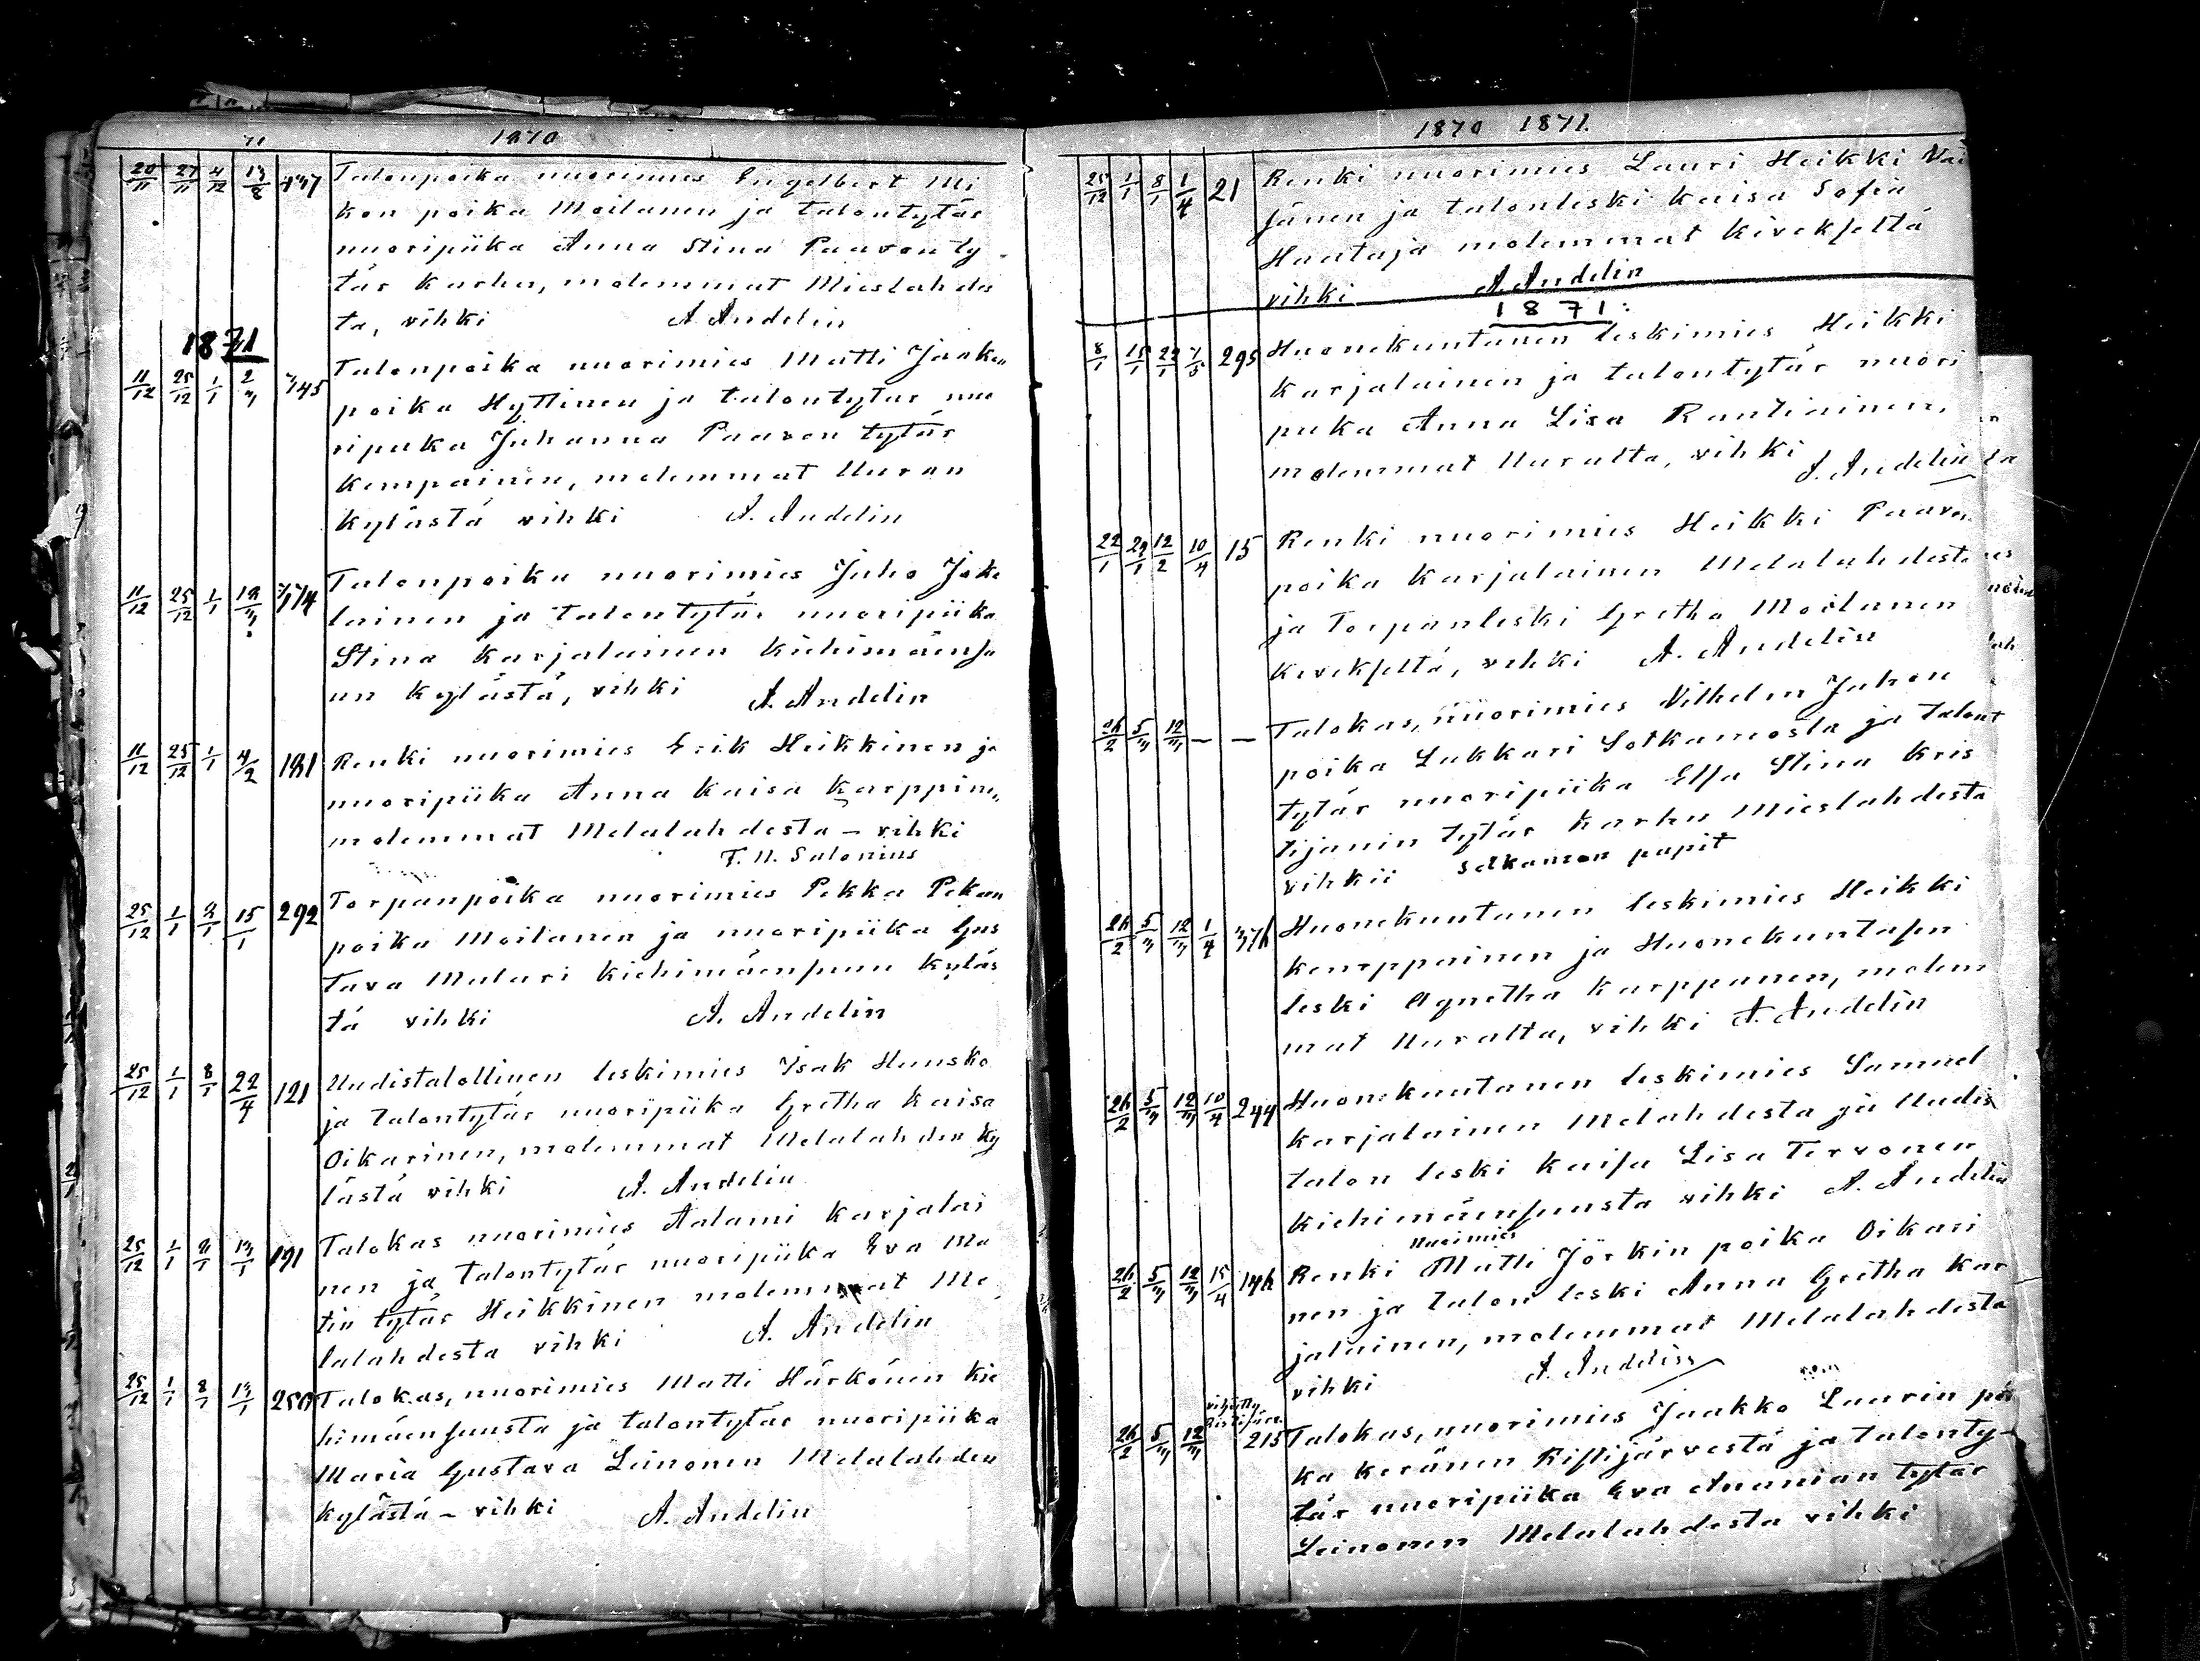 1870
20/11 27/11 4/12 13/8 437 Talonpoika nuorimies Engelbert Mi
kon poika Moilanen ja talontytär
nuoripiika Anna Stina Paavon ty
tär Karhu, molemmat Mieslahdes
ta, vihki A. Andelin
1871
11/12 25/12 1/1 2/3 345 Talonpoika nuorimies Matti Jaakon
poika Hyttinen ja talontytär nuo
ripiika Juhanna Paavon tytär
Kemppainen, molemmat Uuran
kylästä vihki A. Andelin
11/12 25/12 1/1 12/3 374 Talonpoika nuorimies Juho Joke
lainen ja talontytär nuoripiika
Stina Karjalainen Kiehimäensu
un kylästä, vihki A. Andelin
11/12 25/12 1/1 4/2 181 Renki nuorimies Erik Heikkinen ja
nuoripiika Anna Kaisa Karppinen
molemmat Melalahdesta – vihki
T. N. Salonius
25/12 1/1 8/1 15/1 292 Torpanpoika nuorimies Pekka Pekan
poika Moilanen ja nuoripiika Gus
tava Mulari Kiehimäensuun kyläs
tä vihki A. Andelin
25/12 1/1 8/1 22/4 121 Uudistalollinen leskimies Isak Hunsko
ja talontytär nuoripiika Gretha Kaisa
Oikarinen, molemmat Melalahden ky
lästä vihki A. Andelin
25/12 1/1 8/1 13/1 191 Talokas nuorimies Aalami Karjalai
nen ja talontytär nuoripiika Eva Ma
tin tytär Heikkinen molemmat Me
lalahdesta vihki A. Andelin
25/12 1/1 8/1 13/1 250 Talokas, nuorimies Matti Härkönen Kie
himäensuusta ja talontytär nuoripiika
Maria Gustava Leinonen Melalahden
kylästä – vihki A. Andelin
1870 1871
25/12 1/1 8/1 1/4 21 Renki nuorimies Lauri Heikki Väi
sänen ja talonleski Kaisa Sofia
Hautaja molemmat Kivekseltä
vihki A. Andelin
1871:
8/1 15/1 22/1 7/5 295 Huonekuntanen leskimies Heikki
Karjalainen ja talontytär nuori
piika Anna Lisa Rautiainen,
molemmat Uuralta, vihki A. Andelin
22/1 29/1 12/2 10/4 15 Renki nuorimies Heikki Paavon
poika Karjalainen Melalahdesta
ja Torpanleski Gretha Moilanen
Kivekseltä, vihki A. Andelin
26/2 5/3 12/3 – – Talokas, nuorimies Vilhelm Juhon
poika Lukkari Sotkamosta ja talont
tytär nuoripiika Elsa Stina Kris
tijanin tytär Karhu Mieslahdesta
vihkii Sotkamon papit
26/2 5/3 12/3 1/4 376 Huonekuntanen leskimies Heikki
Kemppainen ja Huonekuntasen
leski Agnetha Karppanen, molem
mat Uuralta, vihki A. Andelin
26/2 5/3 12/3 10/4 244 Huonekuntanen leskimies Samuel
Karjalainen Melahdesta ja Uudis
talon leski Kaisa Lisa Tervonen
Kiehimäensuusta vihki A. Andelin
nuorimies
26/2 5/3 12/3 15/4 146 Renki Matti Jörkin poika Oikari
nen ja talon leski Anna Gretha Kar
jalainen, molemmat Melalahdesta
vihki A. Andelin
vihitty Ristijärv.
26/2 5/3 12/3 215 Talokas, nuorimies Jaakko Laurin poi
ka Keränen Ristijärvestä ja talonty-
tär nuoripiika Eva Ananian tytär
Leinonen Melalahdesta vihki